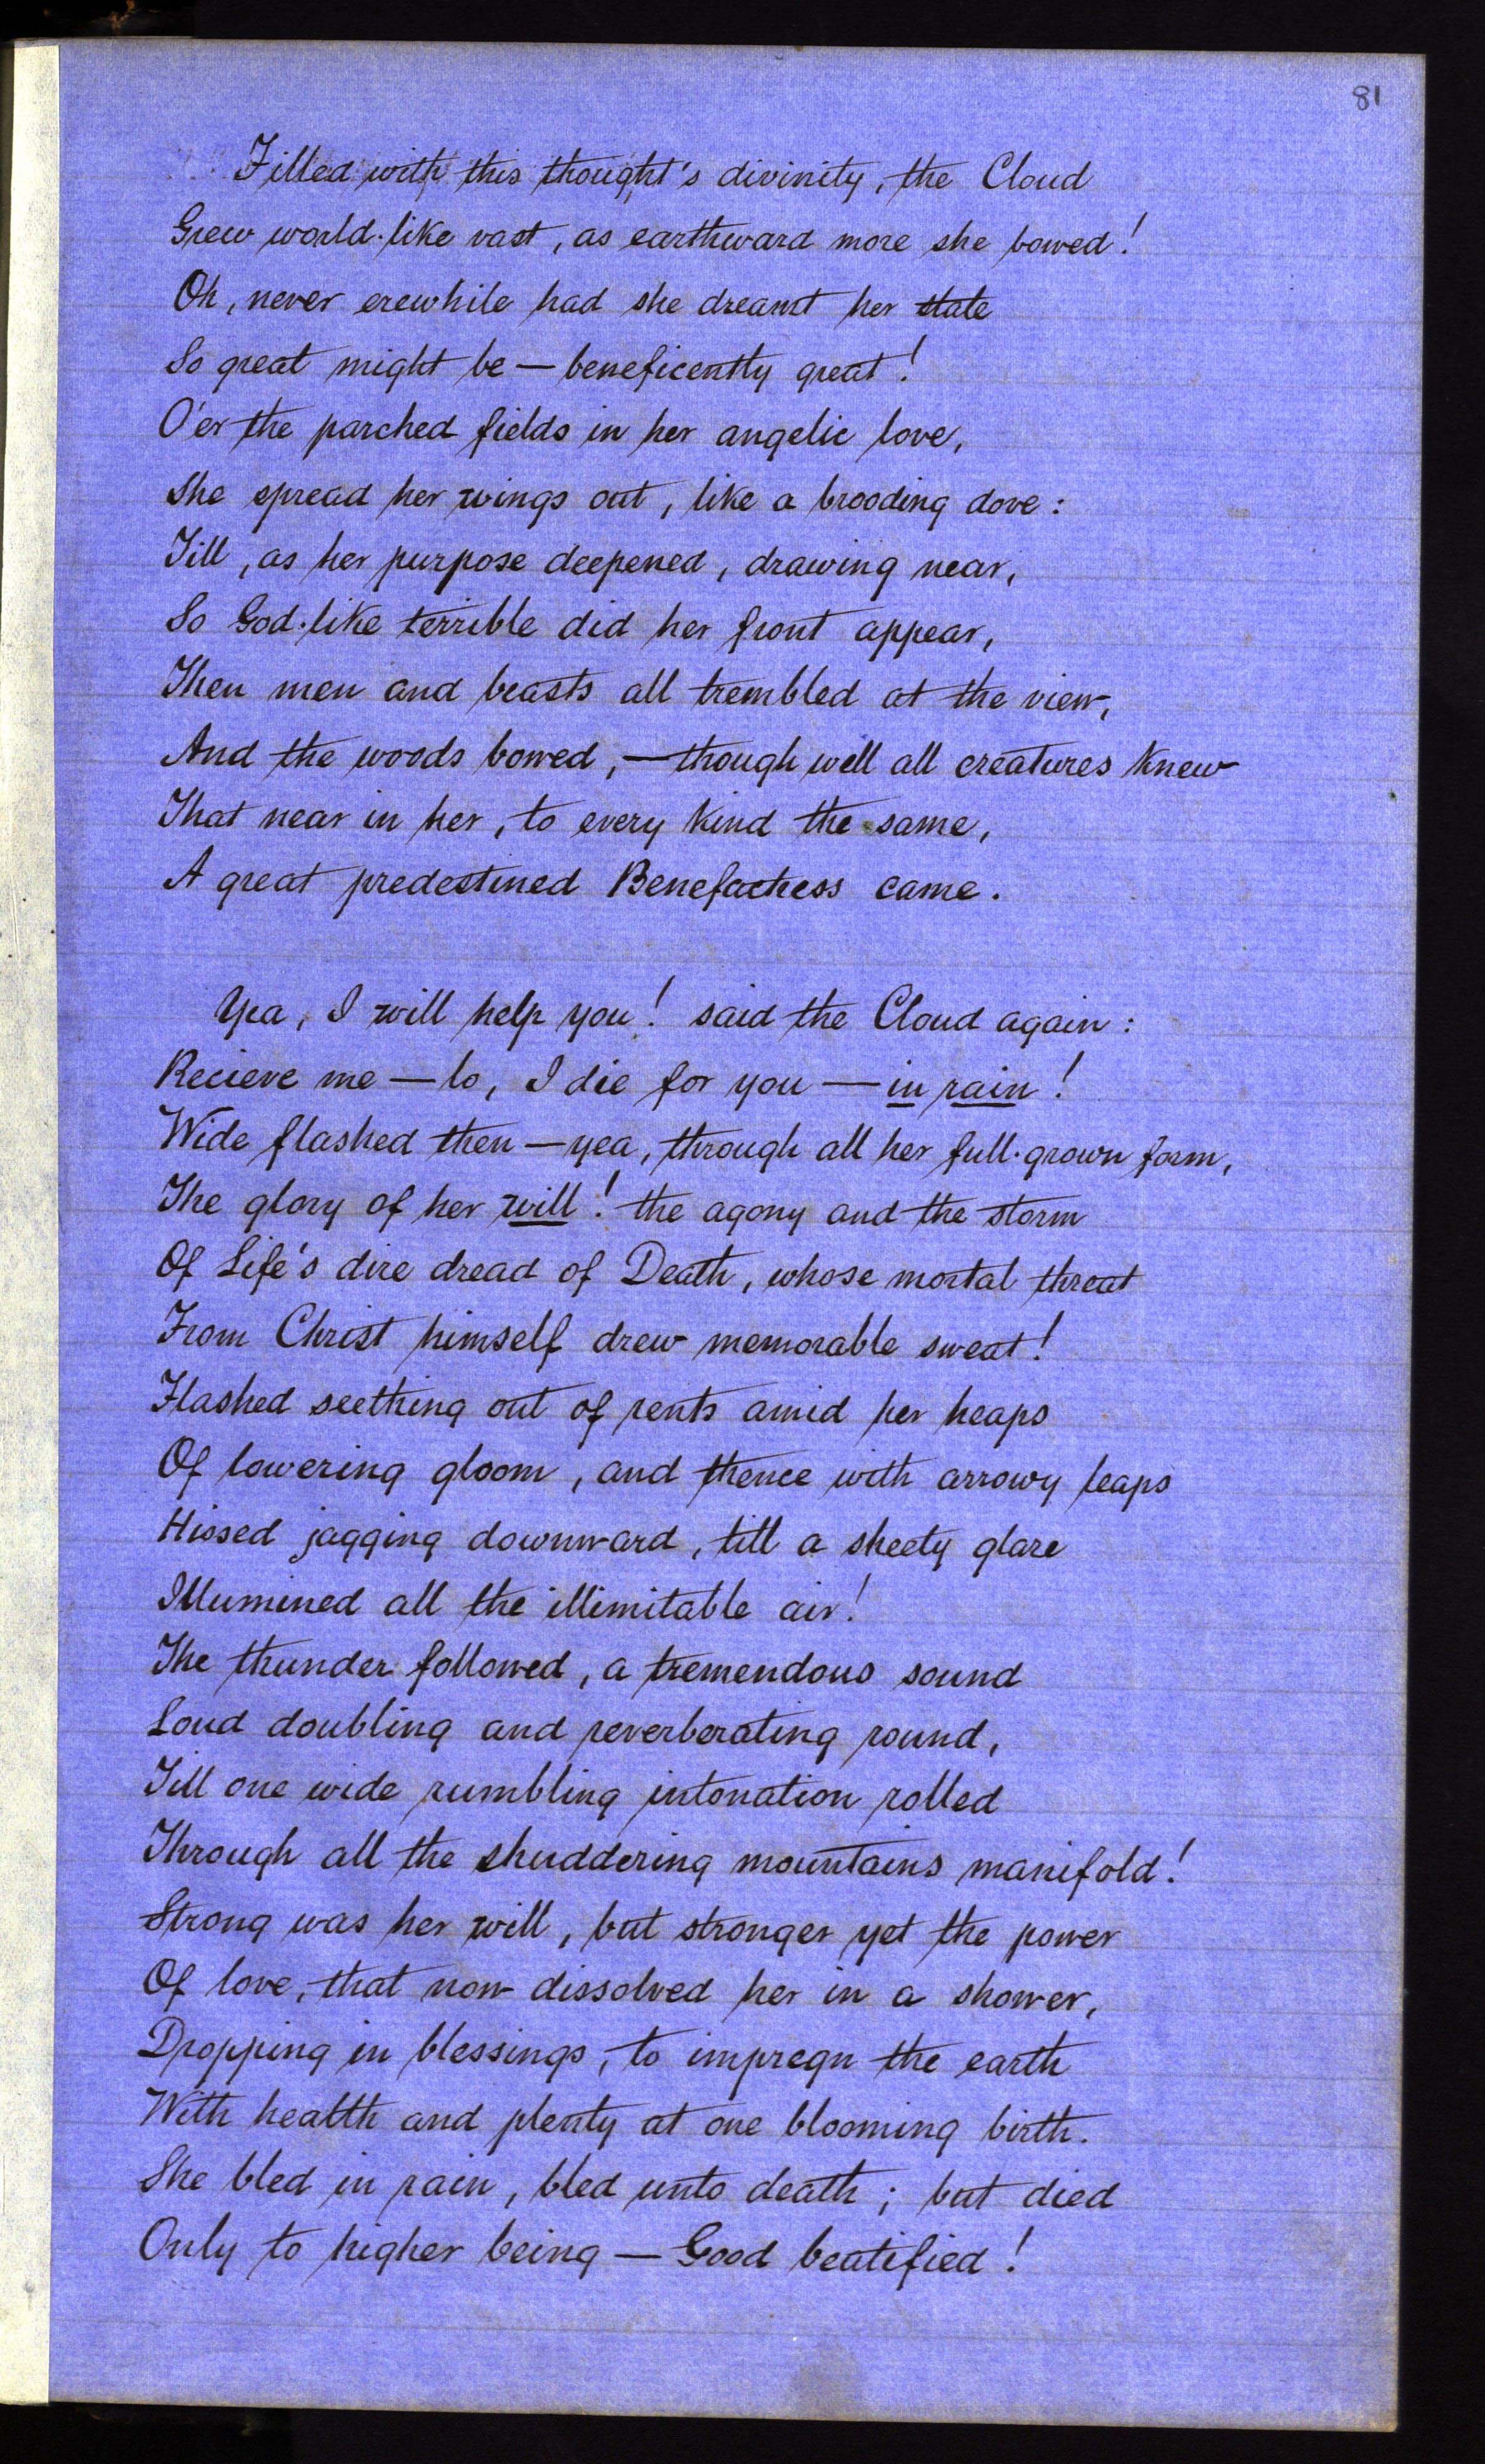 81
Filled with this thought's divinity, the Cloud
Grew world-like vast, as earthward more she bowed!
Oh, never erewhile had she dreamt her state
So great might be — beneficently great!
O'er the parched fields in her angelic love,
She spread her wings out, like a brooding dove:
Till, as her purpose deepened, drawing near,
So God-like terrible did her front appear,
Then men and beasts all trembled at the view,
And the woods bowed, — though well all creatures knew
That near in her, to every kind the same,
A great predestined Benefactress came.
Yea, I will help you! said the Cloud again:
Recieve me — lo, I die for you — in rain!
Wide flashed then — yea, through all her full-grown form,
The glory of her will! the agony and the storm
Of Life's dire dread of Death, whose mortal threat
From Christ himself drew memorable sweat!
Flashed seething out of rents amid her heaps
Of lowering gloom, and thence with arrowy leaps
Hissed jagging downward, till a sheety glare
Illumined all the illimitable air!
The thunder followed, a tremendous sound
Loud doubling and reverberating round,
Till one wide rumbling intonation rolled
Through all the shuddering mountains manifold!
Strong was her will, but stronger yet the power
Of love, that now dissolved her in a shower,
Dropping in blessings, to impregn the earth
With health and plenty at one blooming birth.
She bled in rain, bled unto death; but died
Only to higher being — Good beatified!